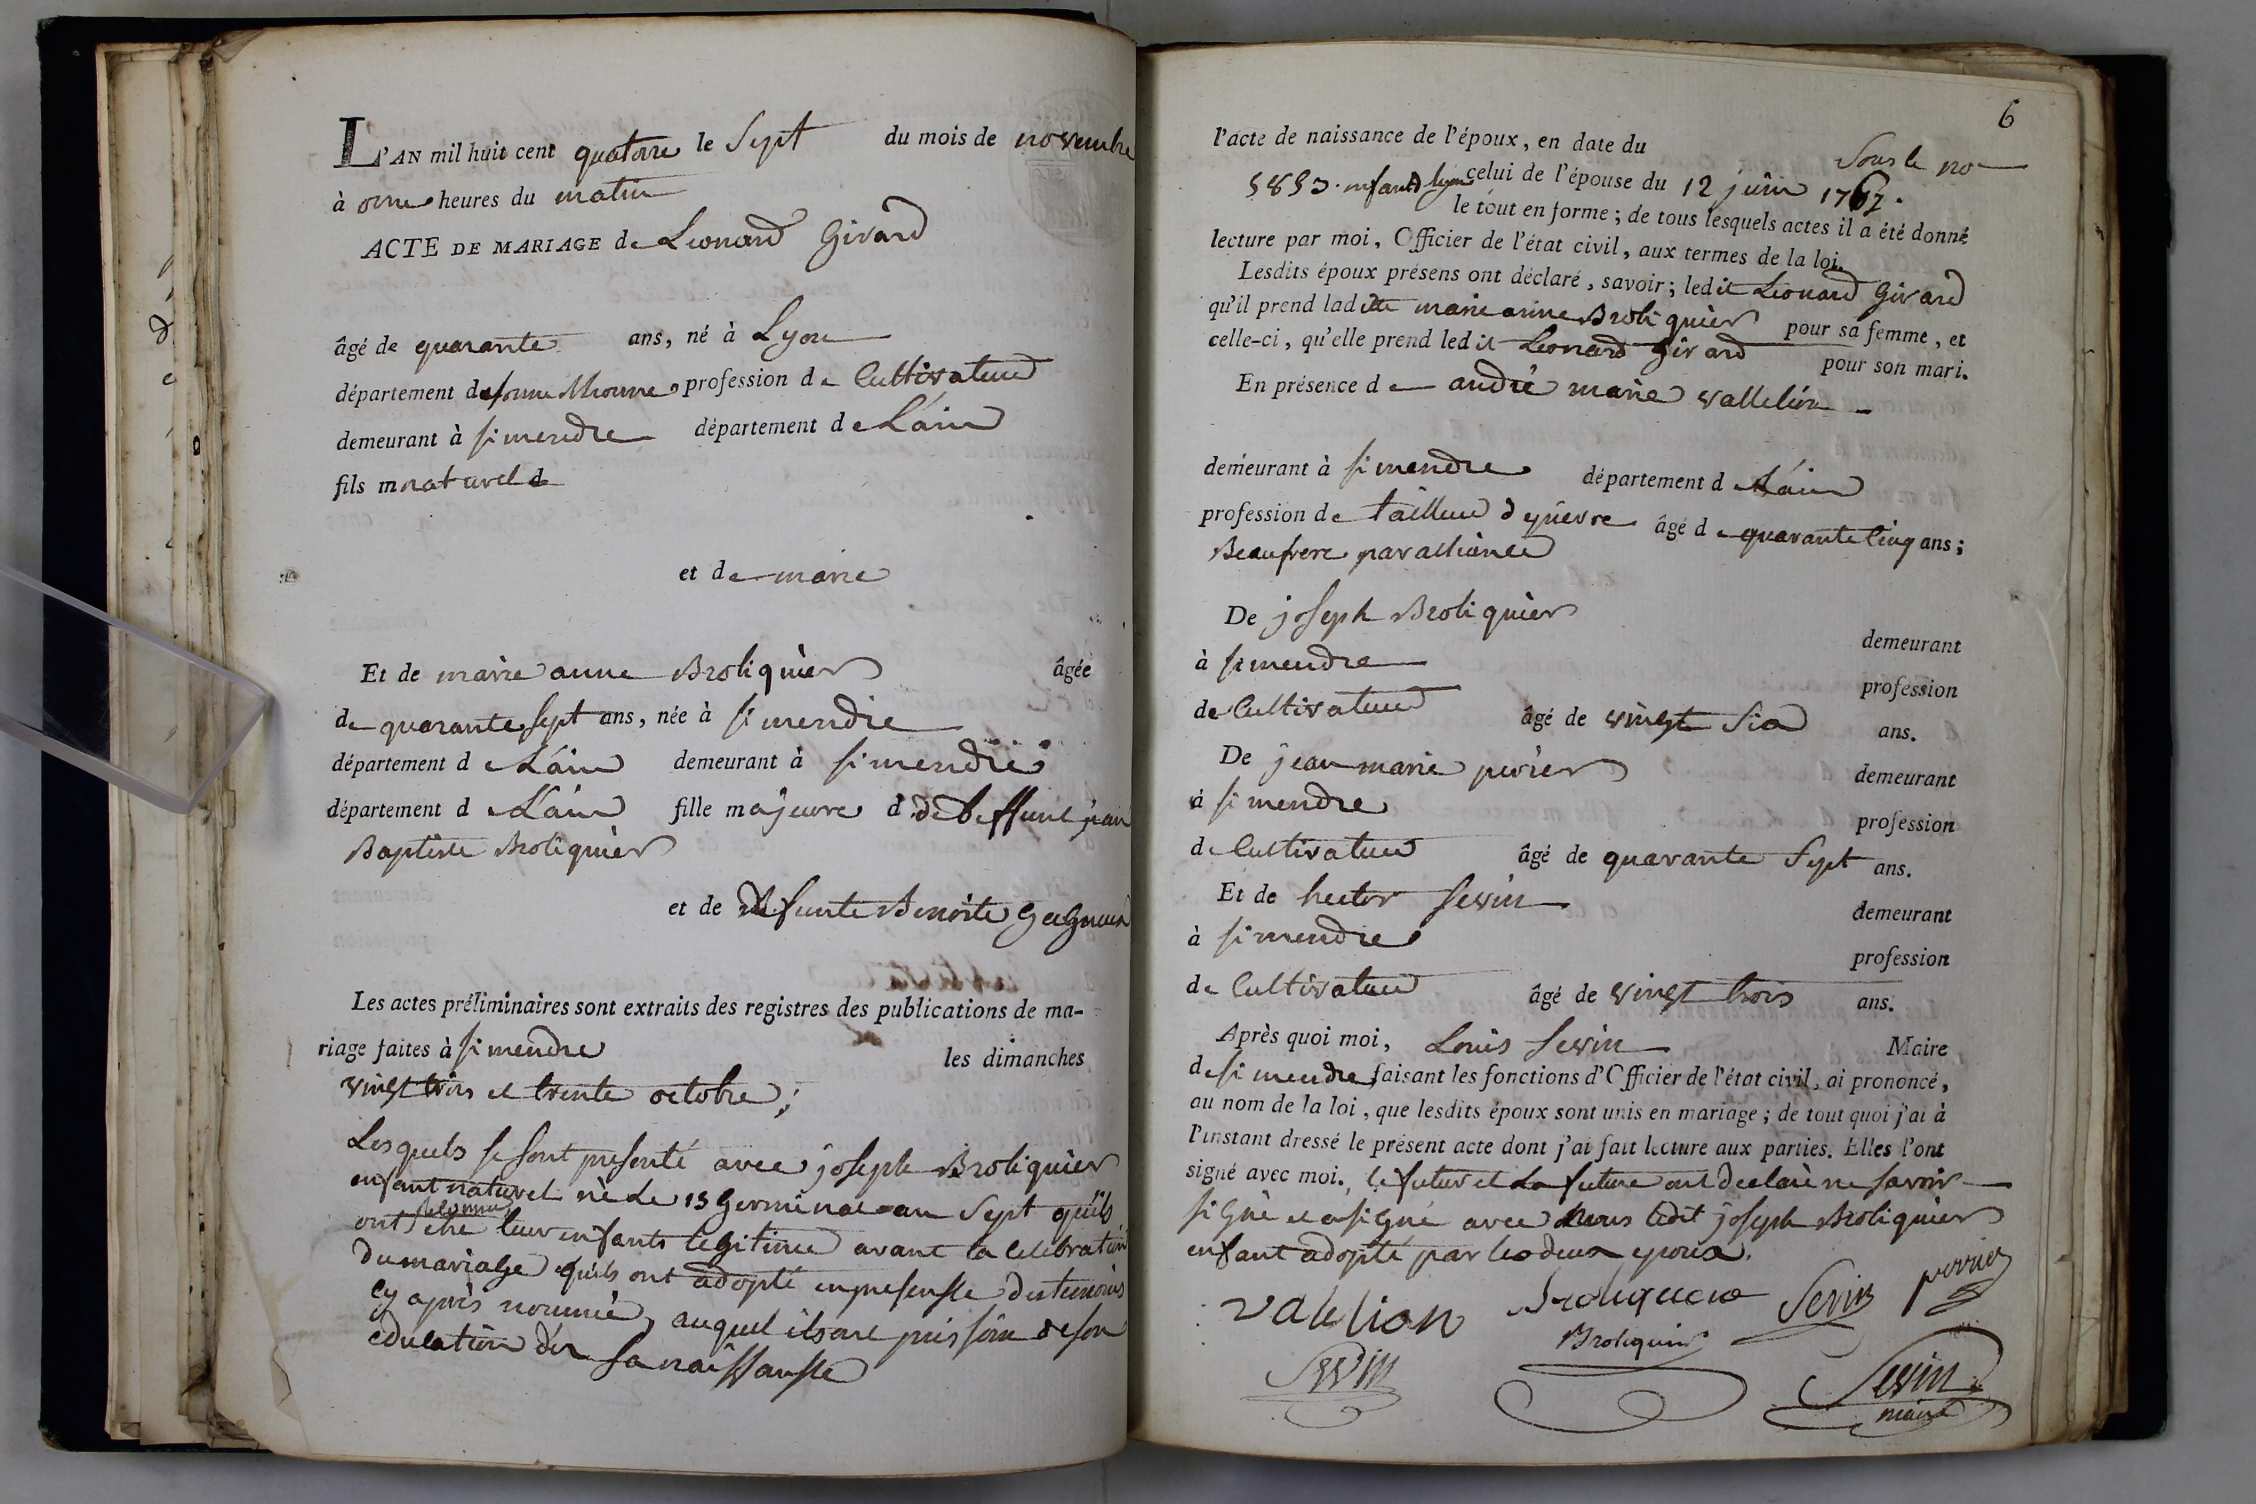 L'AN mil huit cent quatorze le Sept du mois de novembre
à onze heures du matin
ACTE DE MARIAGE de Leonard Girard
âgé de quarante ans, né à Lyon
département de saone Rhonne profession de Cultivateur
demeurant à simendre département de L'ain
fils m naturel de
et de marie
Et de marie anne Broliquier âgée
de quarante sept ans, née à simendre
département de L'ain demeurant à simendre
département de L'ain fille majeure d de deffunt jean
Baptiste Broliquier
et de defunte Benoite
Les actes préliminaires sont extraits des registres des publications de ma-
riage faites à simendre les dimanches
vingt trois et trente octobre;
Lesquels se sont presenté avec joseph Broliquier
enfant naturel né Le 13 Germinal an Sept qu'ils
ont reconnu etre leur enfants legitime avant la celebration
du mariage qu'ils ont adopté en presensse des temoins
cy après nommée, auquel ils ont pris soin de son
education des sa naissansse
6
l'acte de naissance de l'époux, en date du Sous le no
5853. enfant lyon celui de l'épouse du 12 juin 1767.
le tout en forme; de tous lesquels actes il a été donné
lecture par moi, Officier de l'état civil, aux termes de la loi.
Lesdits époux présens ont déclaré, savoir; ledit Leonard Girard
qu'il prend ladite marie anne Broliquier pour sa femme, et
celle-ci, qu'elle prend ledit Leonard Girard pour son mari.
En présence de andré marie vallelion
demeurant à simendre département de L'ain
profession de tailleur d âgé de quarante Cinq ans;
Beaufrere par alliance
De joseph Broliquier
demeurant
à simendre
profession
de Cultivateur âgé de vingt Six ans.
De jean marie perier demeurant
à simendre
profession
de Cultivateur âgé de quarante Sept ans.
Et de hector Sevin
demeurant
à simendre
profession
de Cultivateur âgé de vingt trois ans.
Après quoi moi, Louis Sevin Maire
de simendre faisant les fonctions d'Officier de l'état civil, ai prononcé,
au nom de la loi, que lesdits époux sont unis en mariage; de tout quoi j'ai à
l'instant dressé le présent acte dont j'ai fait lecture aux parties. Elles l'ont
signé avec moi. le futur et La future ont declaré ne savoir
signé et a signé avec Nous ledit joseph Broliquier
enfant adopté par les deux epoux.
valelion Broliquier Sevin perrier
Broliquier
Sevin Sevin
maire